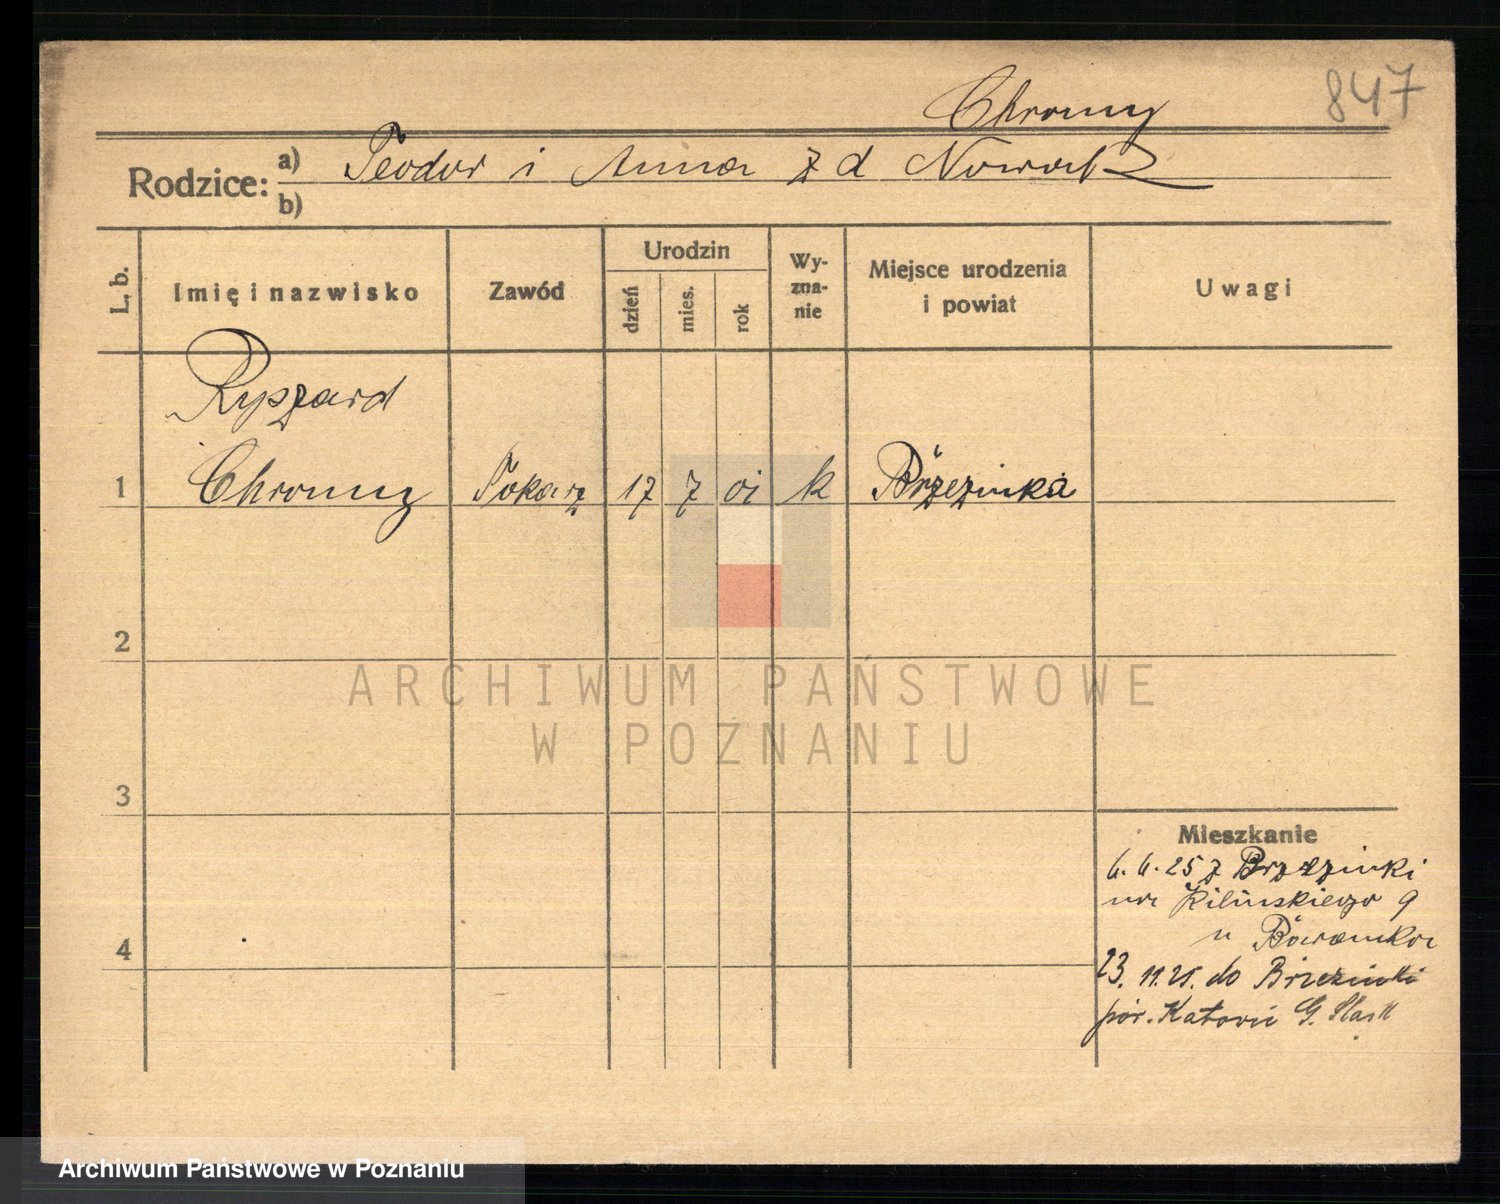 847
Chromy
Rodzice: a) Teodor i Anna z d Nowak
b)
L. b. Imię i nazwisko Zawód Urodzin dzień mies. rok Wy-zna-nie Miejsce urodzenia i powiat Uwagi
Ryszard
1 Chromy Tokarz 17 7 01 k Brzezinka
2
3
4
Mieszkanie
6. 6. 25 z Brzezinki
na Kilińskiego 9
u
23. 11. 25. do Brzezinki
pow. Katowic G. Śląsk
ARCHIWUM PAŃSTWOWE
W POZNANIU
Archiwum Państwowe w Poznaniu